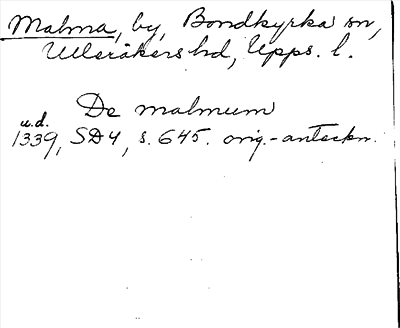 Malma, by, Bondkyrka sn,
Ulleråkers hd, Upps. l.
De malmum
u.d.
1339, SD4, s. 645. orig.-anteckn.